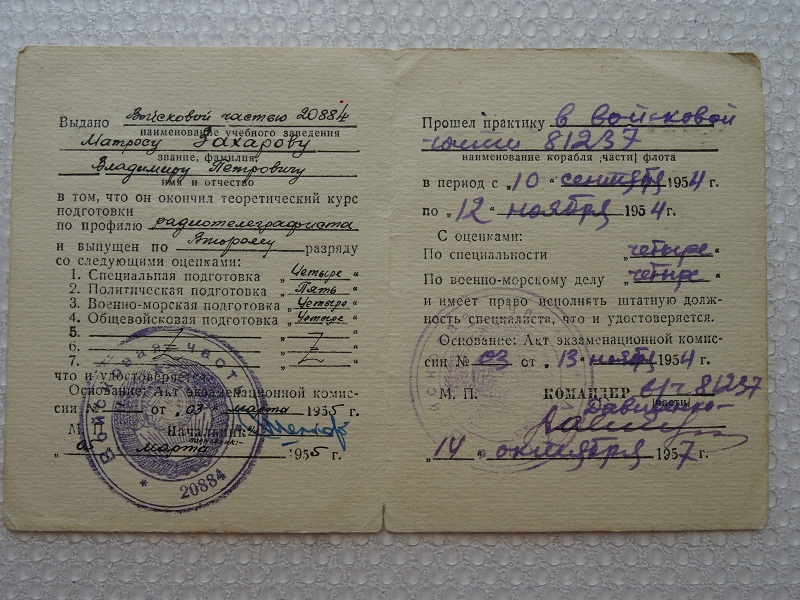 Выдано Войсковой частью 20884
наименование учебного заведения
Матросу Захарову
звание, фамилия,
Владимиру Петровичу
имя и отчество
в том, что он окончил теоретический курс
подготовки
по профилю радиотелеграфиста
и выпущен по Второму разряду
со следующими оценками:
1. Специальная подготовка „Четыре“
2. Политическая подготовка „Пять“
3. Военно-морская подготовка „Четыре“
4. Общевойсковая подготовка „Четыре“
5.
6.
7.
что и удостоверяется.
Основание: Акт экзаменационной комис-
сии № от „03 марта 1955 г.
М. П. Начальник
„05 марта 1955 г.
Войсковая часть
* 20884
Прошел практику в войсковой
части 81237
наименование корабля [части] флота
в период с „10“ сентября 1954 г.
по „12“ ноября 1954 г.
С оценками:
По специальности „четыре“
По военно-морскому делу „четыре“
и имеет право исполнять штатную долж-
ность специалиста, что и удостоверяется.
Основание: Акт экзаменационной комис-
сии № 03 от „13 ноября 1954 г.
М. П. КОМАНДИР в/ч 81237
[части]
„14“ октября 1957 г.